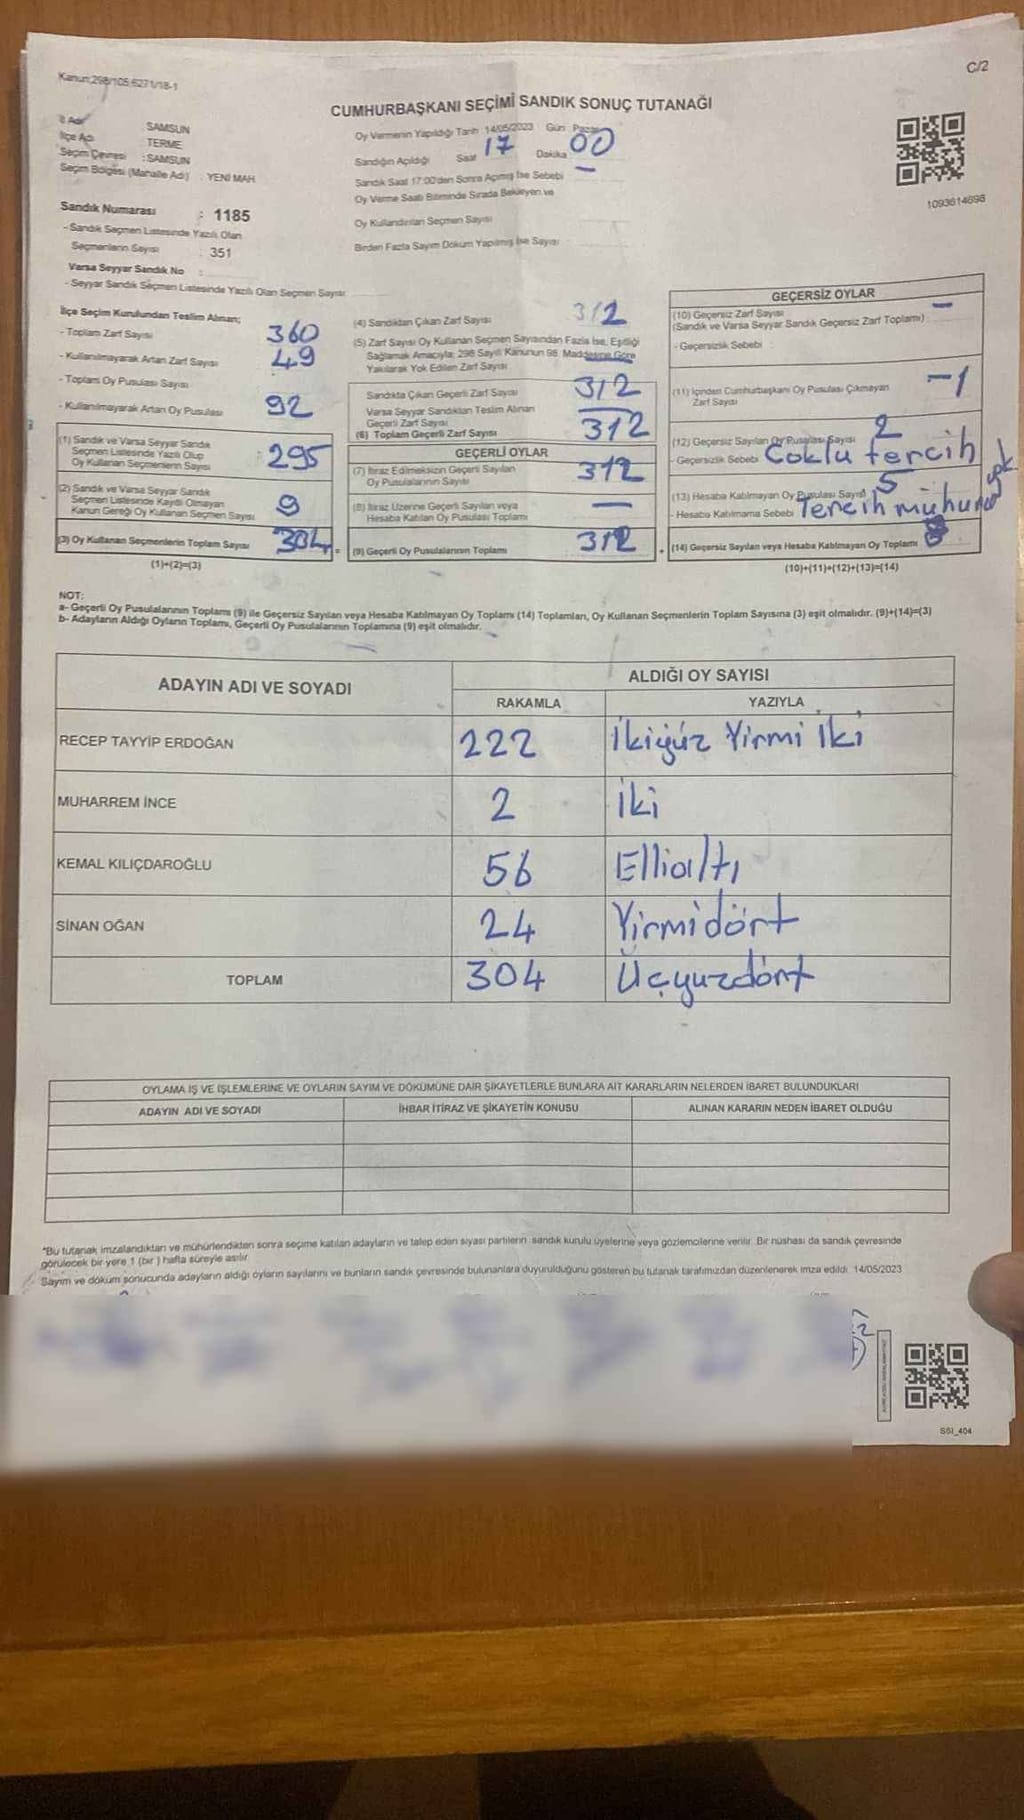 Kanun:298/105;6271/18-1
C/2
CUMHURBAŞKANI SEÇİMİ SANDIK SONUÇ TUTANAĞI
İl Adı SAMSUN
İlçe Adı TERME
Seçim Çevresi : SAMSUN
Seçim Bölgesi (Mahalle Adı) : YENİ MAH
Sandık Numarası : 1185
- Sandık Seçmen Listesinde Yazılı Olan
Seçmenlerin Sayısı : 351
Varsa Seyyar Sandık No :
- Seyyar Sandık Seçmen Listesinde Yazılı Olan Seçmen Sayısı:
Oy Vermenin Yapıldığı Tarih 14/05/2023 Gün : Pazar
Sandığın Açıldığı Saat 17 Dakika 00
Sandık Saat 17:00'den Sonra Açılmış İse Sebebi —
Oy Verme Saati Bitiminde Sırada Bekleyen ve
Oy Kullandırılan Seçmen Sayısı
Birden Fazla Sayım Döküm Yapılmış İse Sayısı
1093614698
İlçe Seçim Kurulundan Teslim Alınan;
- Toplam Zarf Sayısı 360
- Kullanılmayarak Artan Zarf Sayısı 49
- Toplam Oy Pusulası Sayısı
- Kullanılmayarak Artan Oy Pusulası 92
(1) Sandık ve Varsa Seyyar Sandık
Seçmen Listesinde Yazılı Olup
Oy Kullanan Seçmenlerin Sayısı : 295
(2) Sandık ve Varsa Seyyar Sandık
Seçmen Listesinde Kaydı Olmayan
Kanun Gereği Oy Kullanan Seçmen Sayısı 9
(3) Oy Kullanan Seçmenlerin Toplam Sayısı 304
(1)+(2)=(3)
(4) Sandıktan Çıkan Zarf Sayısı 312
(5) Zarf Sayısı Oy Kullanan Seçmen Sayısından Fazla İse, Eşitliği
Sağlamak Amacıyla; 298 Sayılı Kanunun 98. Maddesine Göre
Yakılarak Yok Edilen Zarf Sayısı
Sandıkta Çıkan Geçerli Zarf Sayısı 312
Varsa Seyyar Sandıktan Teslim Alınan
Geçerli Zarf Sayısı —
(6) Toplam Geçerli Zarf Sayısı 312
GEÇERLİ OYLAR
(7) İtiraz Edilmeksizin Geçerli Sayılan
Oy Pusulalarının Sayısı 312
(8) İtiraz Üzerine Geçerli Sayılan veya
Hesaba Katılan Oy Pusulası Toplamı —
(9) Geçerli Oy Pusulalarının Toplamı 312
GEÇERSİZ OYLAR
(10) Geçersiz Zarf Sayısı —
(Sandık ve Varsa Seyyar Sandık Geçersiz Zarf Toplamı) :
- Geçersizlik Sebebi :
(11) İçinden Cumhurbaşkanı Oy Pusulası Çıkmayan —1
Zarf Sayısı
(12) Geçersiz Sayılan Oy Pusulası Sayısı 2
- Geçersizlik Sebebi Çoklu tercih
(13) Hesaba Katılmayan Oy Pusulası Sayısı 5
- Hesaba Katılmama Sebebi Tercih mühürü yok
(14) Geçersiz Sayılan veya Hesaba Katılmayan Oy Toplamı 8
(10)+(11)+(12)+(13)=(14)
NOT:
a- Geçerli Oy Pusulalarının Toplamı (9) ile Geçersiz Sayılan veya Hesaba Katılmayan Oy Toplamı (14) Toplamları, Oy Kullanan Seçmenlerin Toplam Sayısına (3) eşit olmalıdır. (9)+(14)=(3)
b- Adayların Aldığı Oyların Toplamı, Geçerli Oy Pusulalarının Toplamına (9) eşit olmalıdır.
ADAYIN ADI VE SOYADI ALDIĞI OY SAYISI
RAKAMLA YAZIYLA
RECEP TAYYİP ERDOĞAN 222 İkiyüz Yirmi İki
MUHARREM İNCE 2 İki
KEMAL KILIÇDAROĞLU 56 Ellialtı
SİNAN OĞAN 24 Yirmidört
TOPLAM 304 Üçyüzdört
OYLAMA İŞ VE İŞLEMLERİNE VE OYLARIN SAYIM VE DÖKÜMÜNE DAİR ŞİKAYETLERLE BUNLARA AİT KARARLARIN NELERDEN İBARET BULUNDUKLARI
ADAYIN ADI VE SOYADI İHBAR İTİRAZ VE ŞİKAYETİN KONUSU ALINAN KARARIN NEDEN İBARET OLDUĞU
*Bu tutanak imzalandıktan ve mühürlendikten sonra seçime katılan adayların ve talep eden siyasi partilerin sandık kurulu üyelerine veya gözlemcilerine verilir. Bir nüshası da sandık çevresinde
görülecek bir yere 1 (bir) hafta süreyle asılır.
Sayım ve döküm sonucunda adayların aldığı oyların sayılarını ve bunların sandık çevresinde bulunanlara duyurulduğunu gösteren bu tutanak tarafımızdan düzenlenerek imza edildi. 14/05/2023
SSI_404